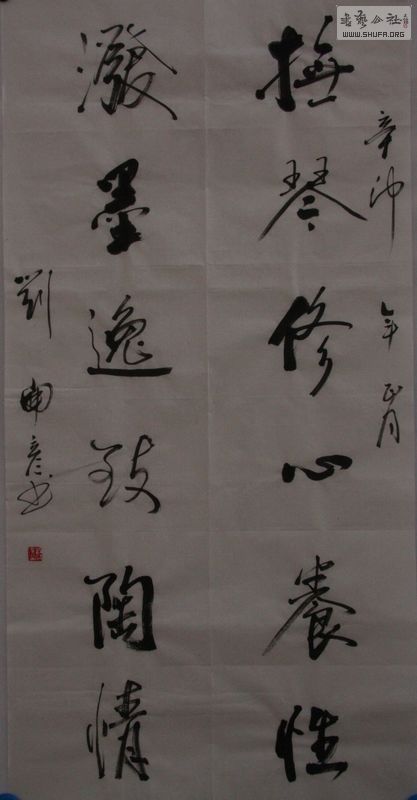 書藝公社
WWW.SHUFA.ORG
辛卯年正月
撫琴修心養性
潑墨逸致陶情
劉彦书